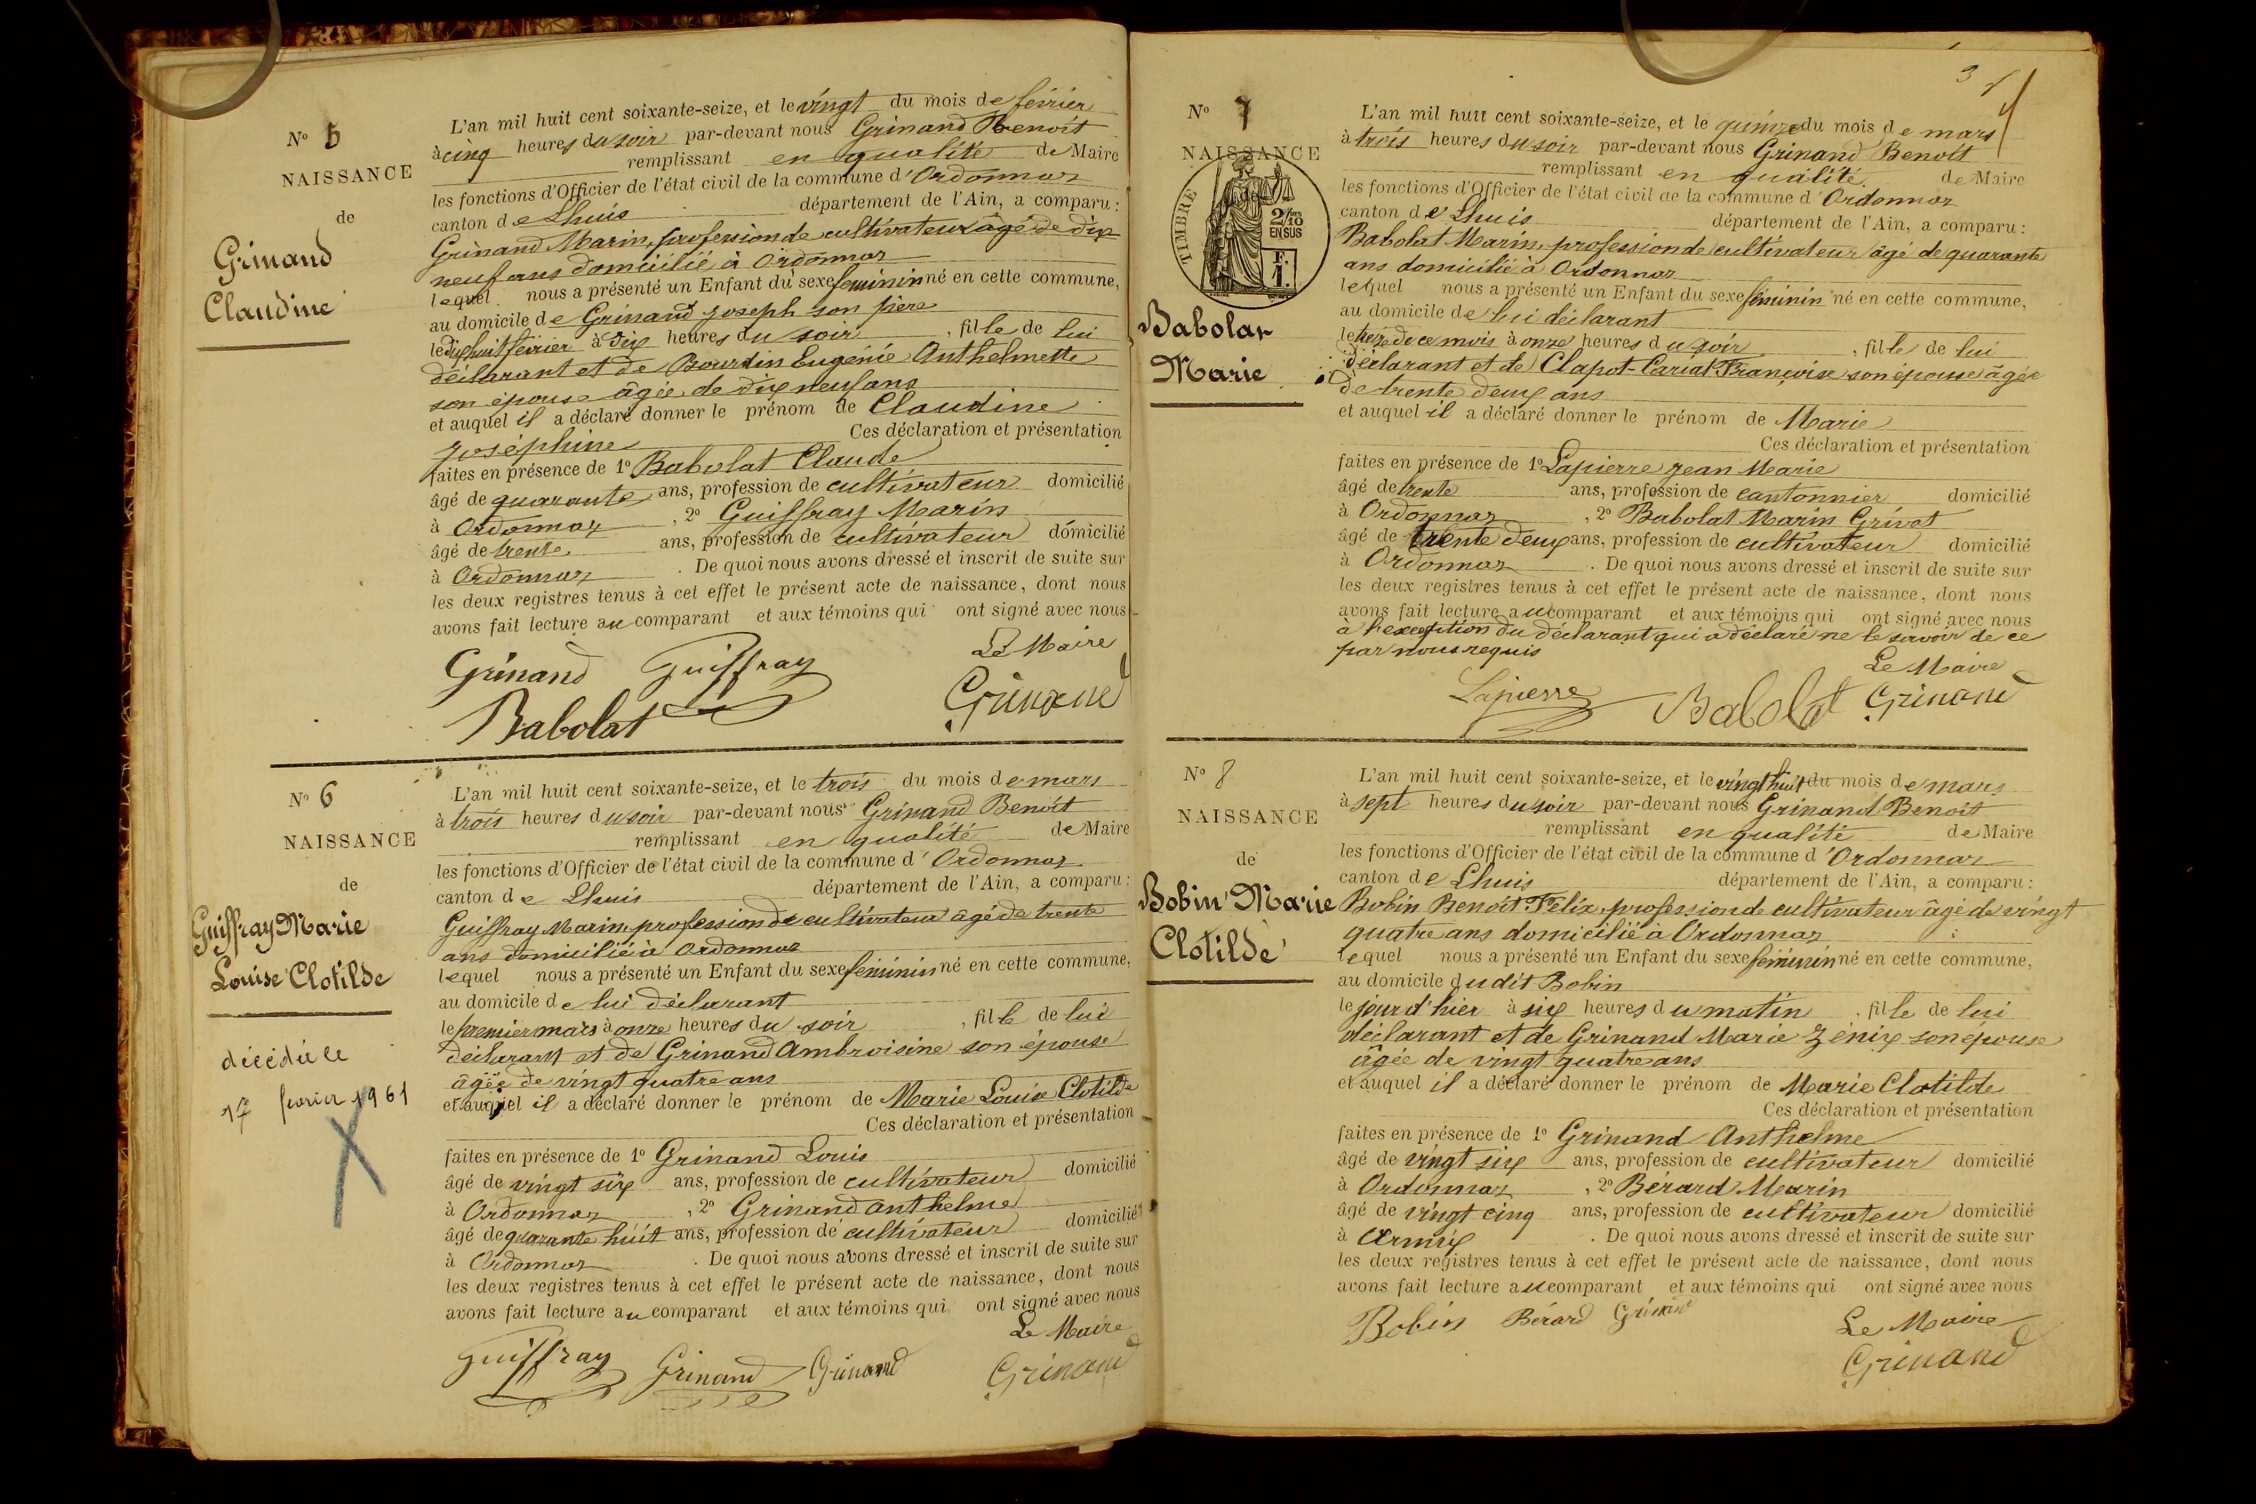 N° 5
NAISSANCE
de
Grinand
Claudine
L'an mil huit cent soixante-seize, et le vingt du mois de février
à cinq heures du soir par-devant nous Grinand Benoît
remplissant en qualité de Maire
les fonctions d'Officier de l'état civil de la commune d'Ordonnaz
canton de Lhuis département de l'Ain, a comparu :
Grinand Marin, profession de cultivateur âgé de dix
neuf ans domicilié à Ordonnaz
lequel nous a présenté un Enfant du sexe féminin né en cette commune,
au domicile de Grinand Joseph son père
le dix huit février à dix heures du soir, fille de lui
déclarant et de Bourdin Eugénie Anthelmette
son épouse âgée de dix neuf ans
et auquel il a déclaré donner le prénom de Claudine
Joséphine Ces déclaration et présentation
faites en présence de 1° Babolat Claude
âgé de quarante ans, profession de cultivateur domicilié
à Ordonnaz, 2° Guiffray Marin
âgé de trente ans, profession de cultivateur domicilié
à Ordonnaz. De quoi nous avons dressé et inscrit de suite sur
les deux registres tenus à cet effet le présent acte de naissance, dont nous
avons fait lecture au comparant et aux témoins qui ont signé avec nous
Le Maire
Grinand Guiffray
Babolat Grinand
N° 6
NAISSANCE
de
Guiffray Marie
Louise Clotilde
décédée le
17 février 1961
L'an mil huit cent soixante-seize, et le trois du mois de mars
à trois heures du soir par-devant nous Grinand Benoît
remplissant en qualité de Maire
les fonctions d'Officier de l'état civil de la commune d'Ordonnaz
canton de Lhuis département de l'Ain, a comparu :
Guiffray Marin, profession de cultivateur âgé de trente
ans domicilié à Ordonnaz
lequel nous a présenté un Enfant du sexe féminin né en cette commune,
au domicile de lui déclarant
le premier mars à onze heures du soir, fille de lui
déclarant et de Grinand Ambroisine son épouse
âgée de vingt quatre ans
et auquel il a déclaré donner le prénom de Marie Louise Clotilde
Ces déclaration et présentation
faites en présence de 1° Grinand Louis
âgé de vingt six ans, profession de cultivateur domicilié
à Ordonnaz, 2° Grinand Anthelme
âgé de quarante huit ans, profession de cultivateur domicilié
à Ordonnaz. De quoi nous avons dressé et inscrit de suite sur
les deux registres tenus à cet effet le présent acte de naissance, dont nous
avons fait lecture au comparant et aux témoins qui ont signé avec nous
Le Maire
Guiffray Grinand Grinand Grinand
3
N° 7
NAISSANCE
TIMBRE
2/10
EN SUS
F.
1.
Babolat
Marie
L'an mil huit cent soixante-seize, et le quinze du mois de mars
à trois heures du soir par-devant nous Grinand Benoît
remplissant en qualité de Maire
les fonctions d'Officier de l'état civil de la commune d'Ordonnaz
canton de Lhuis département de l'Ain, a comparu :
Babolat Marin, profession de cultivateur âgé de quarante
ans domicilié à Ordonnaz
lequel nous a présenté un Enfant du sexe féminin né en cette commune,
au domicile de lui déclarant
le treize de ce mois à onze heures du soir, fille de lui
déclarant et de Clapot-Cariat Françoise son épouse âgée
de trente deux ans
et auquel il a déclaré donner le prénom de Marie
Ces déclaration et présentation
faites en présence de 1° Lapierre Jean Marie
âgé de trente ans, profession de cantonnier domicilié
à Ordonnaz, 2° Babolat Marin Grivet
âgé de trente deux ans, profession de cultivateur domicilié
à Ordonnaz. De quoi nous avons dressé et inscrit de suite sur
les deux registres tenus à cet effet le présent acte de naissance, dont nous
avons fait lecture au comparant et aux témoins qui ont signé avec nous
à l'exception du déclarant qui a déclaré ne le savoir de ce
par nous requis
Le Maire
Lapierre Babolat Grinand
N° 8
NAISSANCE
de
Bobin Marie
Clotilde
L'an mil huit cent soixante-seize, et le vingt huit du mois de mars
à sept heures du soir par-devant nous Grinand Benoît
remplissant en qualité de Maire
les fonctions d'Officier de l'état civil de la commune d'Ordonnaz
canton de Lhuis département de l'Ain, a comparu :
Bobin Benoît Felix, profession de cultivateur âgé de vingt
quatre ans domicilié à Ordonnaz
lequel nous a présenté un Enfant du sexe féminin né en cette commune,
au domicile dudit Bobin
le jour d'hier à six heures du matin, fille de lui
déclarant et de Grinand Marie Zénix son épouse
âgée de vingt quatre ans
et auquel il a déclaré donner le prénom de Marie Clotilde
Ces déclaration et présentation
faites en présence de 1° Grinand Anthelme
âgé de vingt six ans, profession de cultivateur domicilié
à Ordonnaz, 2° Bérard Marin
âgé de vingt cinq ans, profession de cultivateur domicilié
à Armix. De quoi nous avons dressé et inscrit de suite sur
les deux registres tenus à cet effet le présent acte de naissance, dont nous
avons fait lecture au comparant et aux témoins qui ont signé avec nous
Bobin Bérard Grinand Le Maire
Grinand